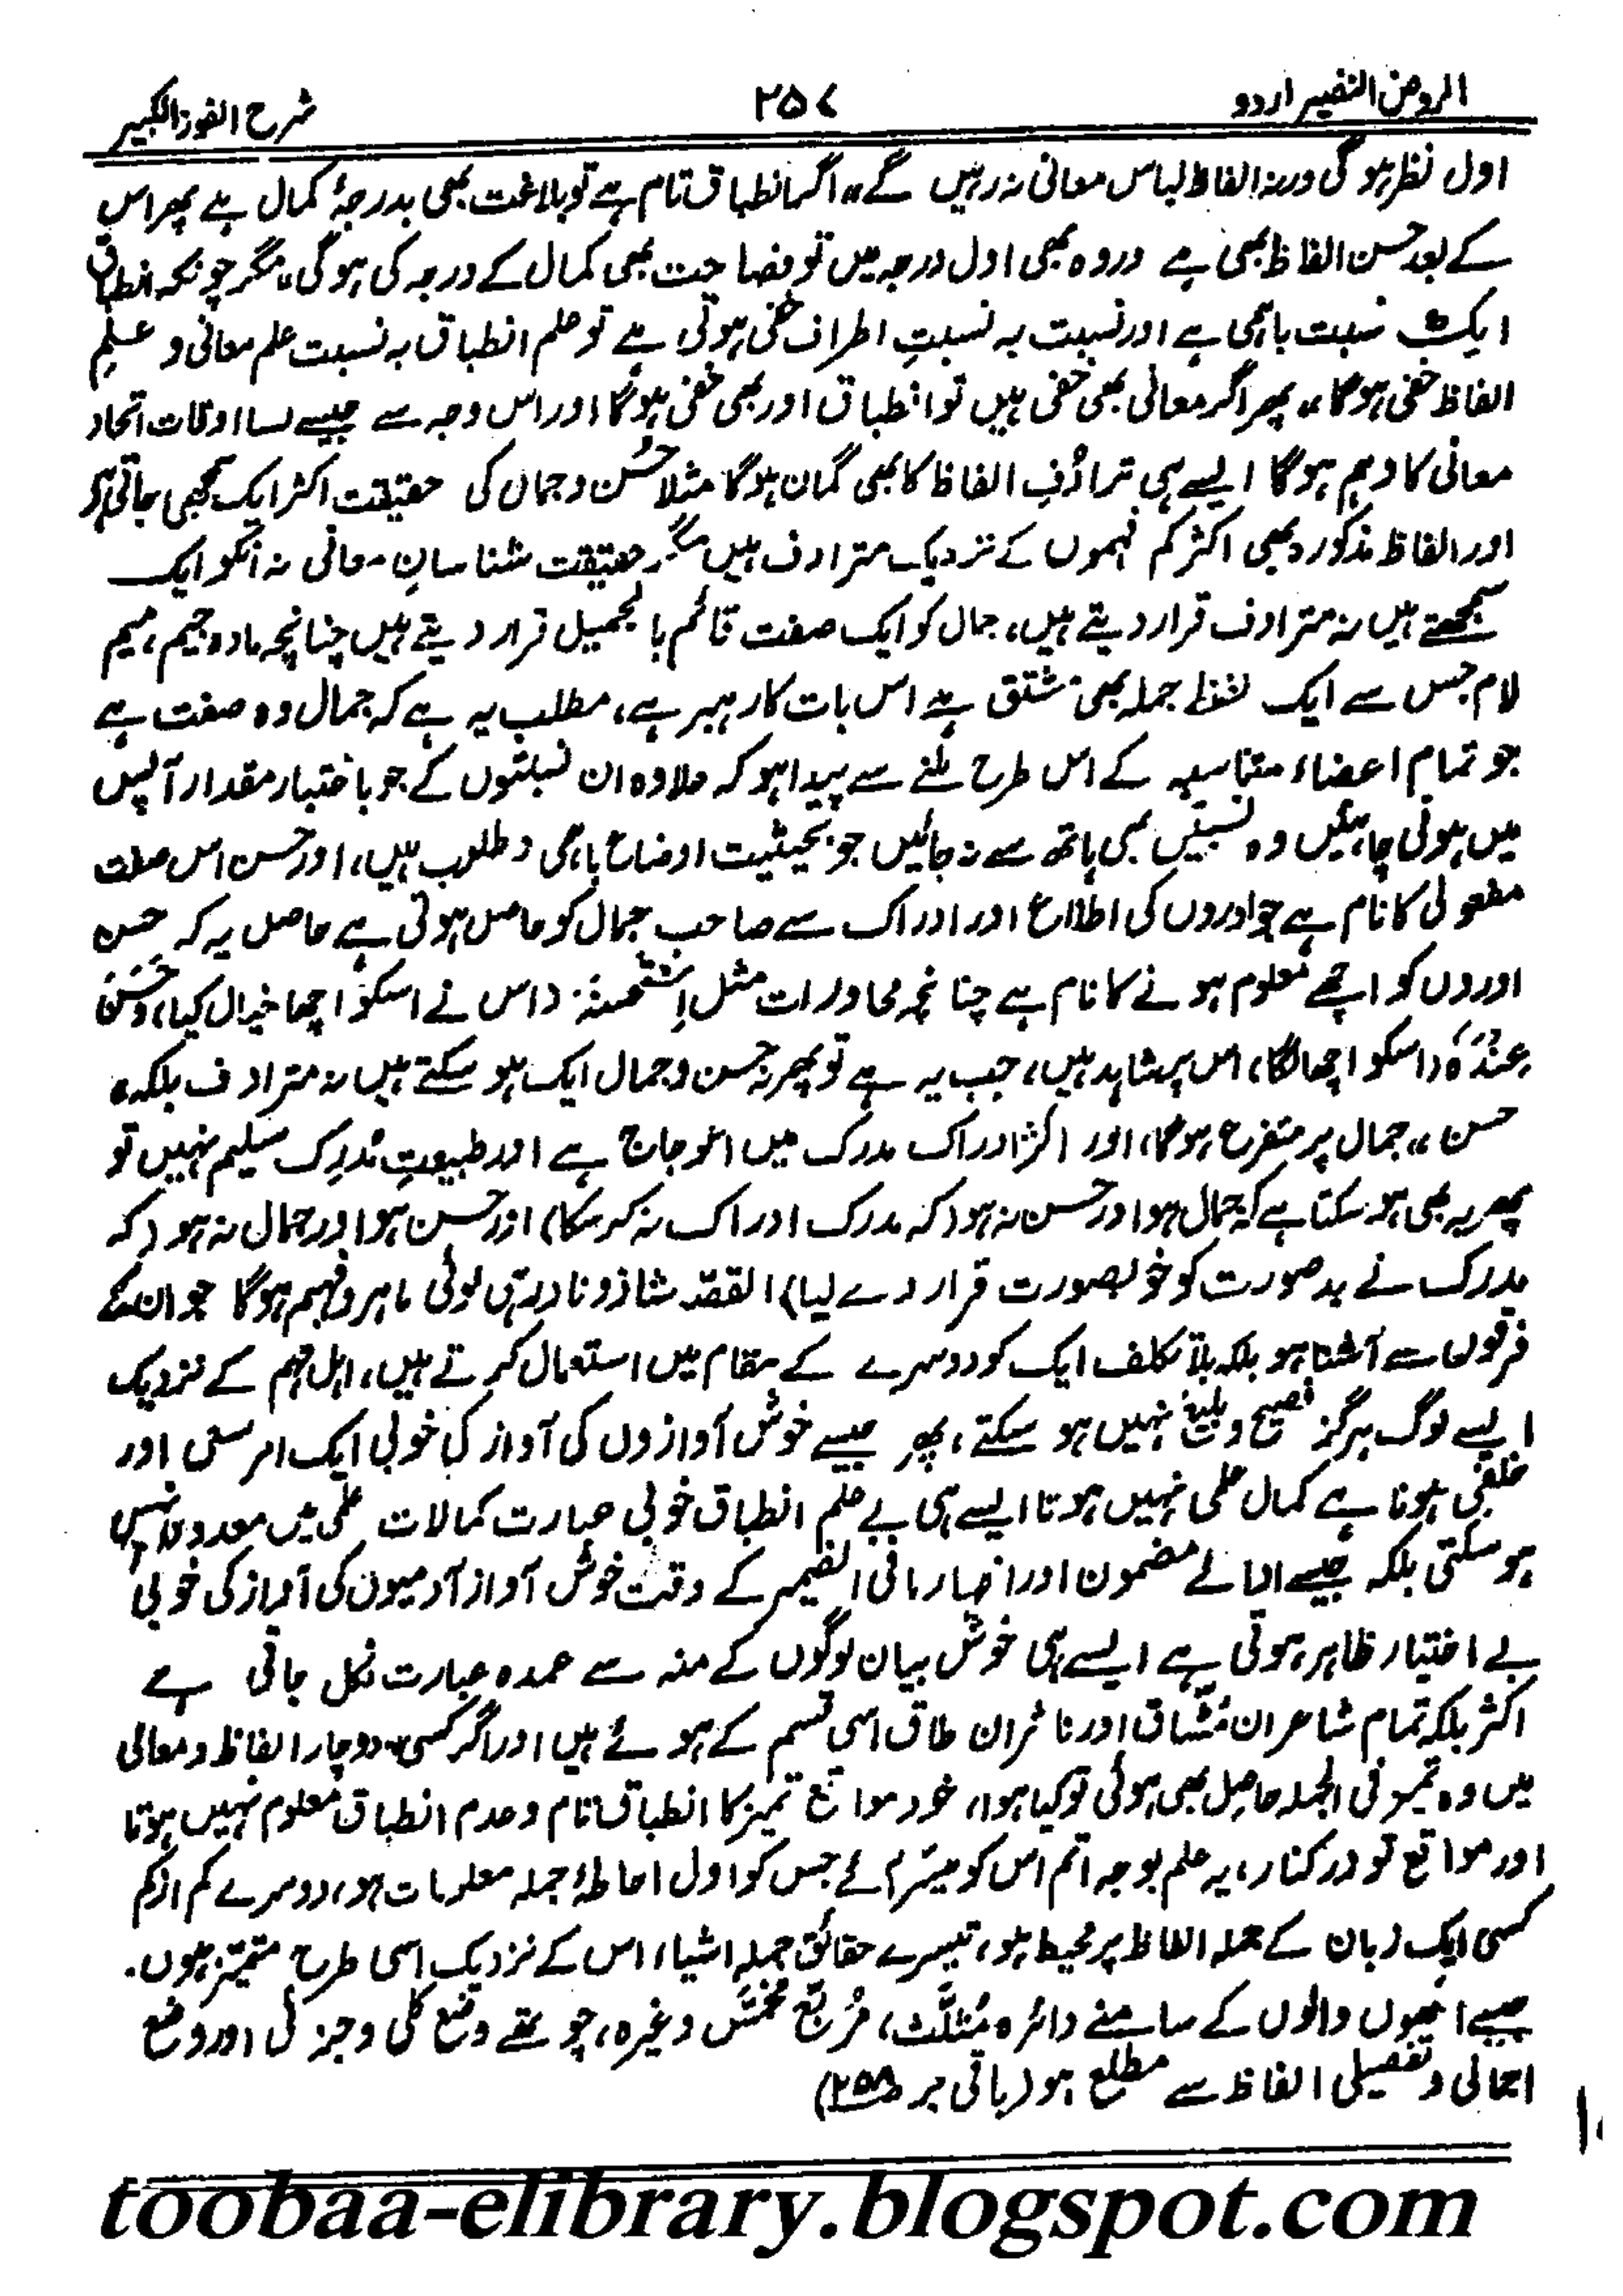 الروض النضیر اردو
۲۵۷
شرح الفوز الکبیر
اول نظر ہوگی ورنہ الفاظ لباس معانی نہ رہیں گے،، اگر انطباق تام ہے تو بلاغت بھی بدرجۂ کمال ہے پھر اس
کے بعد حسن الفاظ بھی ہے اور وہ بھی اول درجہ میں تو فصاحت بھی کمال کے درجہ کی ہوگی،، مگر چونکہ انطباق
ایک نسبت باہمی ہے اور نسبت بہ نسبتِ اطراف خفی ہوتی ہے تو علم انطباق بہ نسبت علم معانی و علمِ
الفاظ خفی ہوگا،، پھر اگر معانی بھی خفی ہیں تو انطباق اور بھی خفی ہوگا اور اس وجہ سے جیسے بسا اوقات اتحاد
معانی کا وہم ہوگا ایسے ہی ترادُفِ الفاظ کا بھی گمان ہوگا مثلا حُسن وجمال کی حقیقت اکثر ایک سمجھی جاتی ہے
اور الفاظ مذکورہ بھی اکثر کم فہموں کے نزدیک مترادف ہیں مگر حقیقت شناسانِ معانی نہ انکو ایک
سمجھتے ہیں نہ مترادف قرار دیتے ہیں، جمال کو ایک صفت قائم بالجمیل قرار دیتے ہیں چنانچہ مادہ جیم، میم
لام جس سے ایک لفظ جملہ بھی مشتق ہے اس بات کا رہبر ہے، مطلب یہ ہے کہ جمال وہ صفت ہے
جو تمام اعضاء متناسبہ کے اس طرح ملنے سے پیدا ہو کہ علاوہ ان نسبتوں کے جو باعتبار مقدار آپس
میں ہونی چاہئیں وہ نسبتیں بھی ہاتھ سے نہ جائیں جو بحیثیت اوضاع باہمی مطلوب ہیں، اور حسن اس صفت
مفعولی کا نام ہے جو اوروں کی اطلاع اور ادراک سے صاحب جمال کو حاصل ہوتی ہے حاصل یہ کہ حسن
اوروں کو اچھے معلوم ہونے کا نام ہے چنانچہ محاورات مثل اِسْتَحْسَنَہٗ (اس نے اسکو اچھا خیال کیا) وحَسُنَ
عِنْدَہٗ (اسکو اچھا لگا) اس پر شاہد ہیں، جب یہ ہے تو پھر نہ حسن وجمال ایک ہو سکتے ہیں نہ مترادف بلکہ،،
حسن،، جمال پر متفرع ہوگا، اور اگر ادراک مدرک میں اعوجاج ہے اور طبیعتِ مُدرِک سلیم نہیں تو
پھر یہ بھی ہو سکتا ہے کہ جمال ہو اور حسن نہ ہو (کہ مدرک ادراک نہ کر سکا) اور حسن ہو اور جمال نہ ہو (کہ
مدرک نے بدصورت کو خوبصورت قرار دے لیا) القصہ شاذ ونادر ہی کوئی ماہر وفہیم ہوگا جو ان کے
فرقوں سے آشنا ہو بلکہ بلا تکلف ایک کو دوسرے کے مقام میں استعمال کرتے ہیں، اہل فہم کے نزدیک
ایسے لوگ ہرگز فصیح وبلیغ نہیں ہو سکتے، پھر جیسے خوش آوازوں کی آواز کی خوبی ایک امر اور
خلقی ہوتا ہے کمال علمی نہیں ہوتا ایسے ہی بے علم انطباق خوبی عبارت کمالات علمی میں معدود نہیں
ہو سکتی بلکہ جیسے ادائے مضمون اور اظہار مافی الضمیر کے وقت خوش آواز آدمیوں کی آواز کی خوبی
بے اختیار ظاہر ہوتی ہے ایسے ہی خوش بیان لوگوں کے منہ سے عمدہ عبارت نکل جاتی ہے
اکثر بلکہ تمام شاعران مُشّاق اور ناثران طاق اسی قسم کے ہوئے ہیں اور اگر کسی دو چار الفاظ ومعانی
میں وہ تمیز فی الجملہ حاصل بھی ہوئی تو کیا ہوا، خود مواقع تمیز کا انطباق تام وعدم انطباق معلوم نہیں ہوتا
اور مواقع تو درکنار، یہ علم بوجہ اتم اس کو میسّر آئے جس کو اول احاطۂ جملہ معلومات ہو، دوسرے کم از کم
کسی ایک زبان کے جملہ الفاظ پر محیط ہو، تیسرے حقائق جملہ اشیاء اس کے نزدیک اسی طرح متمیّز ہوں.
جیسے انکھیوں والوں کے سامنے دائرہ مُثلّث، مُربّع مُخمّس وغیرہ، چوتھے وضع کلی وجزئی اور وضع
اجمالی وتفصیلی الفاظ سے مطلع ہو (باقی بر ۲۵۸)
toobaa-elibrary.blogspot.com